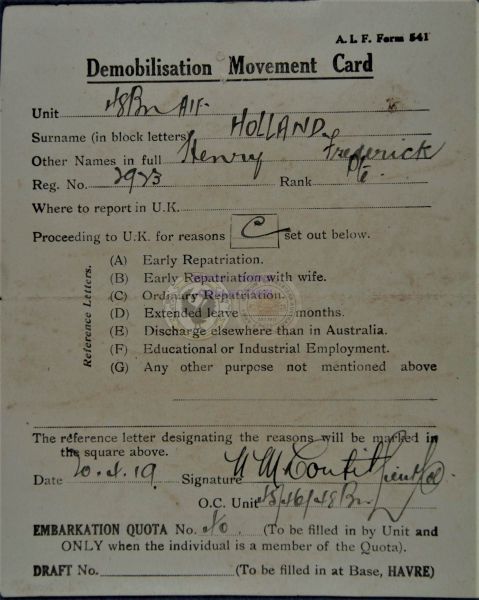 A. I. F. Form 541
Demobilisation Movement Card
Unit 48Bn AIF
Surname (in block letters) HOLLAND
Other Names in full Henry Frederick
Reg. No. 2933 Rank
Where to report in U.K.
Proceeding to U.K. for reasons C set out below.
Reference Letters.
(A) Early Repatriation.
(B) Early Repatriation with wife.
(C) Ordinary Repatriation.
(D) Extended leave months.
(E) Discharge elsewhere than in Australia.
(F) Educational or Industrial Employment.
(G) Any other purpose not mentioned above
The reference letter designating the reasons will be marked in
the square above.
Date 19 Signature
O.C. Unit 45/46/48 Bn
EMBARKATION QUOTA No. (To be filled in by Unit and
ONLY when the individual is a member of the Quota).
DRAFT No. (To be filled in at Base, HAVRE)